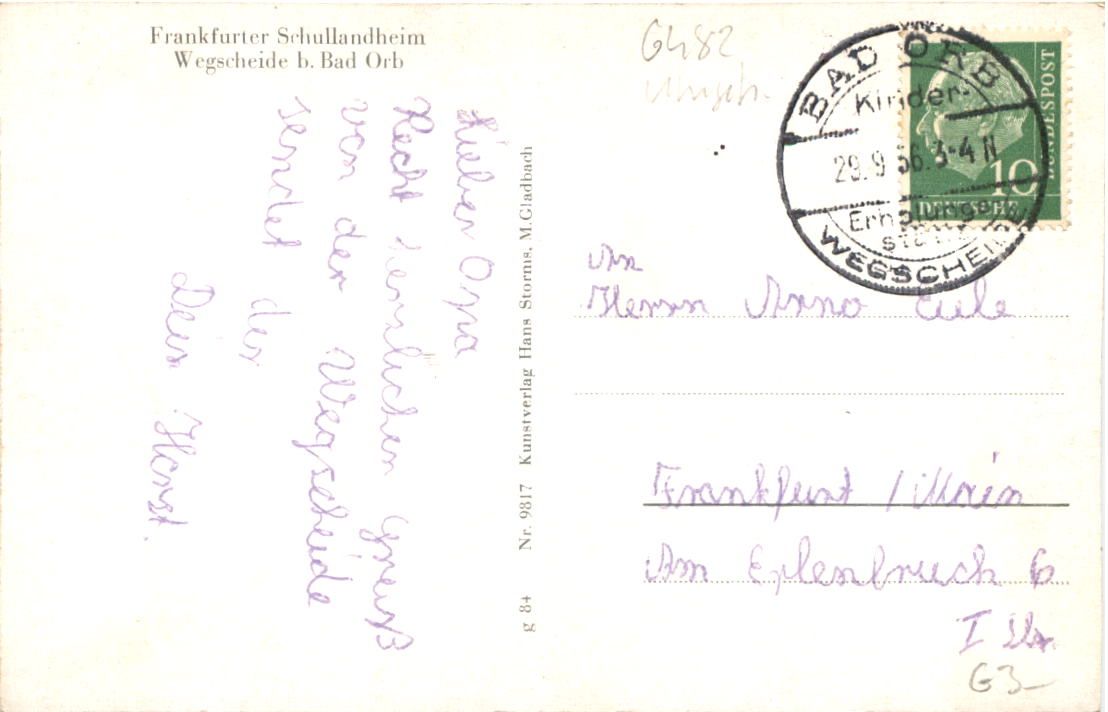 Frankfurter Schullandheim
Wegscheide b. Bad Orb
Lieber Opa
Recht herzlichen Grueß
von der Wegscheide
sendet dir
Dein Horst.
g 84 Nr. 9817 Kunstverlag Hans Storms, M.Gladbach
G482
BAD ORB
Kinder-
29.9.56.3-4 N
Erholungs-
WEGSCHEIDE
DEUTSCHE
BUNDESPOST
10
An
Herrn Arno
Frankfurt / Main
Am Erlenbruch 6
I
G3-